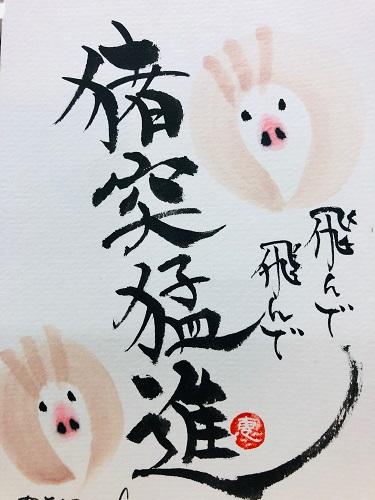 飛んで
飛んで
猪突猛進
恵